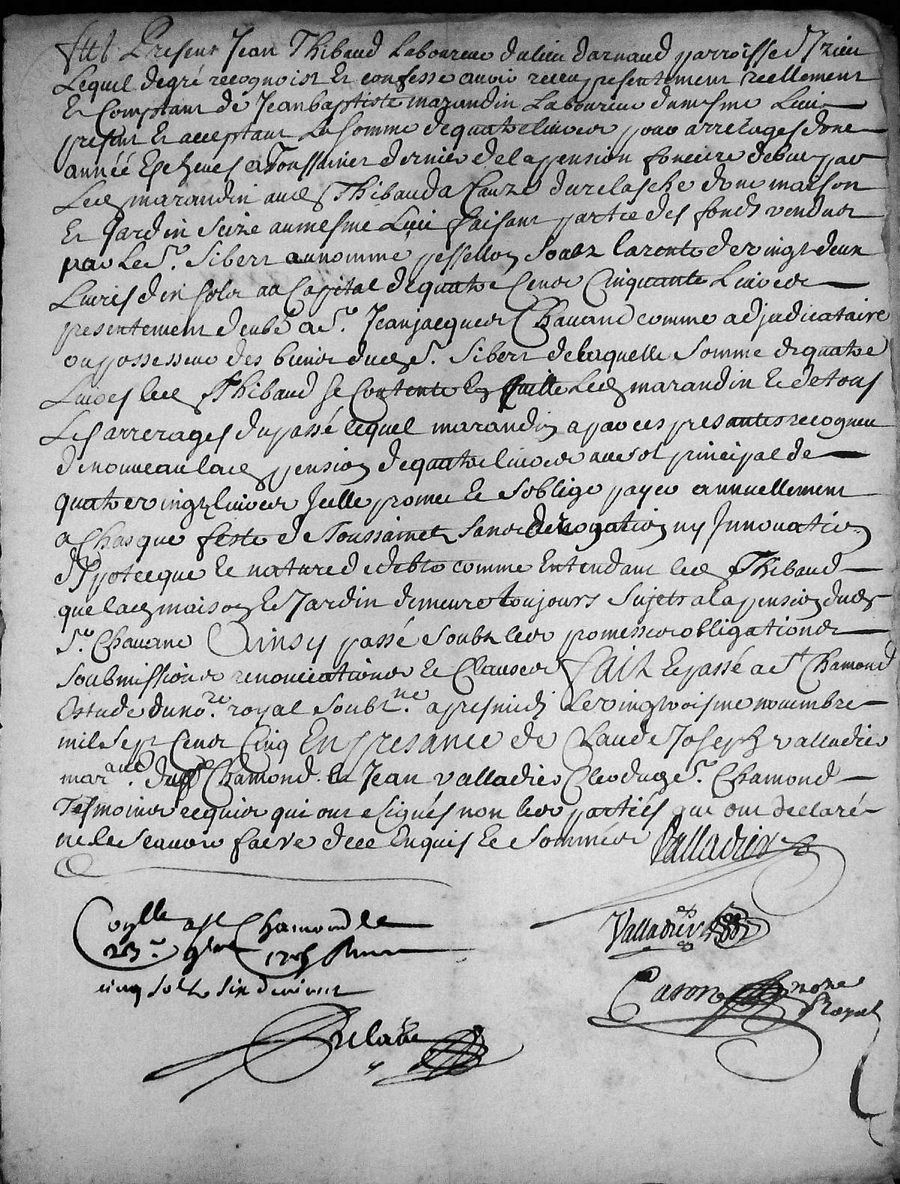 Fut Present Jean Thibaud Laboureur du lieu darnaud parroisse d'Izieu
Lequel de gré recognoist Et confesse avoir receu presentement reellement
Et Comptant de Jean baptiste marandin Laboureur du mesme Lieu
present Et acceptant La somme de quatre livres pour arrerages d'une
année Escheües a Toussaincts dernier de la pension fonciere deüe par
Led marandin aud Thibaud a Cause du relasché d'une maison
Et Jardin size au mesme Lieu faisant partie des fonds vendus
par Le Sr. Sibert au nomme pessellon soubz la rente de vingt deux
Livres dix sols au Capital de quatre Cens Cinquante Livres
presentement deube a Sr. Jean jacques Chavanne comme adjudicataire
ou possesseur des biens dud Sr. Sibert de laquelle somme de quatre
Livres led Thibaud se Contente En quitte Led marandin Et de tous
Les arrerages du passé lequel marandin a par ces presantes recogneu
de nouveau lad pension de quatre livres au sol principal de
quatre vingt livres Icelle promet Et s'oblige payer annuellement
a Chasque feste de Toussainct sans derogation ny Innovation
d'ypotecque Et nature de debte comme Entendant led Thibaud
que lad maison Et Jardin demeure toujours sujets a la pension dud
Sr. Chavanne Ainsy passé soubz les promesses obligations
soubmissions renonciations Et Clauses fait Et passé a St Chamond
Estude du nore. royal soubzne. apres midi Le vingt troisme novembre
mil sept Cens Cinq En presance de Claude Joseph valladier
marand. dud St Chamond Et Jean valladier Clerc dud St. Chamond
Tesmoins requis qui ont signés non les parties qui ont declaré
ne le scavoir faire de ce Enquis Et sommés Valladier
Conlle a St Chamond le
23e. 9bre 1705 Receu
cinq sols six deniers
Valladier
Caron nore
Royal